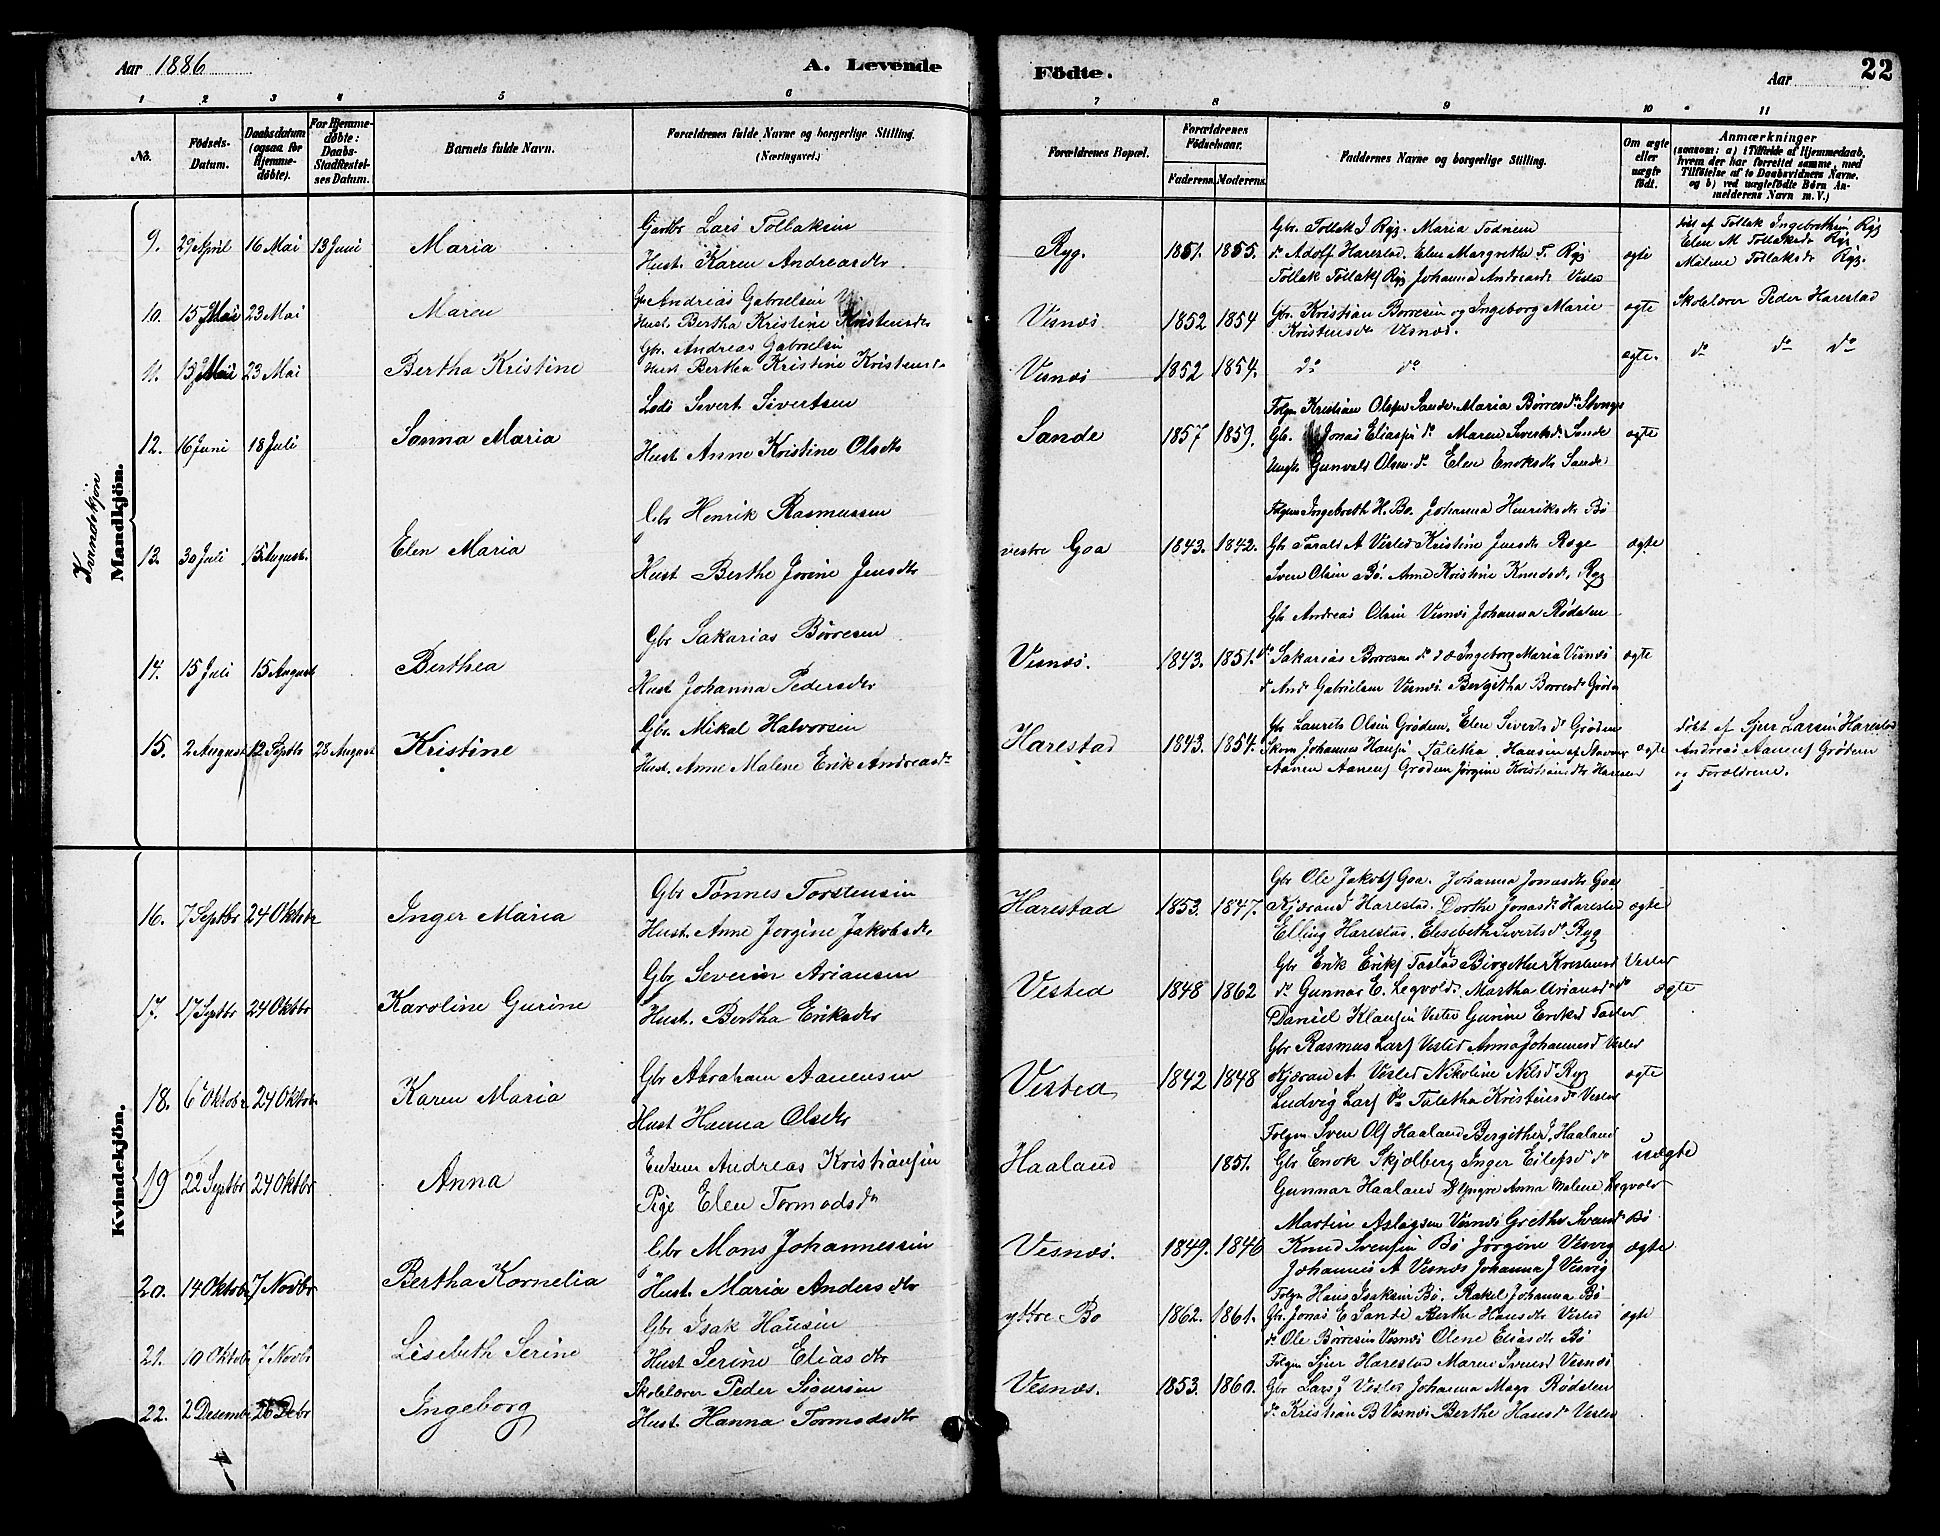 Aar 1886
A. Levende Födte.
Aar
22
1 2 3 4 5 6 7 8 9 10 11
No.
Födsels-Datum.
Daabsdatum (ogsaa for Hjemme-døbte).
For Hjemme-døbte: Daabs-Stadfestel-ses Datum.
Barnets fulde Navn.
Forældrenes fulde Navne og borgerlige Stilling. (Næringsvei.)
Forældrenes Bopæl.
Forældrenes Födselsaar.
Faderens. Moderens.
Faddernes Navne og borgerlige Stilling.
Om ægte eller uægte født.
Anmærkninger
(saasom: a) i Tilfælde af Hjemmedaab,
hvem der har forrettet samme, med
Tilføielse af to Daabsvidners Navne,
og b) ved uægtefødte Børn An-
melderens Navn m. V.)
Kvindekjön
Mandkjön.
9. 29 April 16 Mai 13 Juni Maria
Gaardbr Lars Tollaksen
Hust. Karen Andreasdtr.
Ryg. 1851. 1855.
Gbr. Tollak I Ryg. Maria Todnem
do Adolf Harestad. Elen Margrethe T. Ryg
Tollak Tollaksf Ryg Johanna Andreasd Vested
ægte
døbt af Tollak Ingebrethsen Ryg
Elen M Tollaksdr Ryg
Malene Tollaksdr Ryg.
10. 15 Mai 23 Mai Maren
Gbr Andreas Gabrielsen
Hust. Bertha Kristine Kristensdtr
Visnæs. 1852 1854
Gbr. Kristian Børresen og Ingeborg Marie
Kristensdr Visnæs.
ægte
Skolelærer Peder Harestad
11. 15 Mai 23 Mai Bertha Kristine
Gbr. Andreas Gabrielsen
Hust Bertha Kristine Kristensd
Visnæs 1852 1854. do do ægte. do do do
12. 16 Juni 18 Juli Sanna Maria
Lods Sivert Sivertsen
Hust Anne Kristine Olsdtr
Sande 1857 1859.
Folgm Kristian Olsen Sande. Maria Børresdr
Gbr. Jonas Eliasen do Maren Sivertsdr Sande
Ungk. Gunvald Olsen do Elen Enoksdtr Sande
ægte
13. 30 Juli 15 August. Elen Maria
Gbr Henrik Rasmussen
Hust Berthe Jorine Jensdtr
vestre Goa 1843. 1842.
Folgm Ingebreth H. Bø. Johanna Henriksdtr Bø
Gbr Tarald A Vested Kristine Jensdtr Røge
Sven Olsen Bø. Anne Kristine Knudsdr Ryg
ægte
14. 15 Juli 15 August Berthea
Gbr Sakarias Børresen
Hust Johanna Pedersdtr
Visnæs. 1843. 1851.
Gbr Andreas Olsen Visnæs Johanna Rødalen
do Sakarias Børresen do Ingeborg Maria Visnæs
do And. Gabrielsen Visnæs Bergitha Børresdr Grøda
ægte
15. 2 August 12 Septbr 28 August Kristine
Gbr. Mikal Halvorsen
Hust. Anne Malene Erik Andreasdr
Harestad 1843. 1854.
Gbr Laurets Olsen Grødem. Elen Sivertsdr Grødem
Skom Johannes Hansen Taletha Hansen af Stavanger
Aanen Aanensf Grødem Jørgine Kristiansdtr
ægte
døbt af Sjur Larsen Harestad
Andreas Aanensf Grødem
og Forældrene.
Kvindekjön.
16. 7 Septbr 24 Oktobr Inger Maria
Gbr Tønnes Torstensen
Hust. Anne Jorgine Jakobsdtr
Harestad 1853. 1847.
Gbr Ole Jakobsf Goa. Johanna Jonasdtr Goa
Kjærand Harestad. Dorthe Jonasdr Harestad
Elling Harestad. Elisabeth Sivertsdr Ryg
ægte
17. 17 Septbr 24 Oktbr Karoline Gurine
Gbr Severin Ariansen
Hust. Bertha Eriksdtr
Vested 1848 1862
Gbr Erik Eriksf Tasted Birgithe Kristensd Vested
do Gunnar E. Legvold. Martha Ariansdr do
Daniel Klausen Vested Gurine Eriksd Tasted
ægte
18. 6 Oktobr 24 Oktobr Karen Maria
Gbr Abraham Aanensen
Hust Hanna Olsdtr
Vested 1842 1848
Gbr Rasmus Larsf Vested Anna Johannesd Vested
Kjæran A Vested Nikoline Nilsdr Ryg
Ludvig Larsf do Taletha Kristensdr Vested
ægte
19 22 Septbr 24 Oktbr Anna
Enkem Andreas Kristiansen
Pige Elen Tormodsdr
Haaland 1851.
Folgm Sven Olsf Haaland Bergithe J. Haaland
Gbr Enok Skjolberg Inger Eilefsdr do
Gunnar Haaland Anna Malene Legvold
uægte
20. 14 Oktobr 7 Novbr Bertha Kornelia
Gbr Mons Johannessen
Hust. Maria Andersdtr
Visnæs. 1849. 1846
Martin Aslagsen Visnæs Grethe Svensdr Bø
Knud Svensen Bø Jørgine Visvig
Johannes A Visnæs Johanna J Visvig
ægte
21. 10 Oktobr 7 Novbr Lisebeth Serine
Gbr Isak Hansen
Hust Serine Eliasdtr
yttre Bø 1862. 1861.
Folgm Hans Isaksen Bø. Rakel Johanna Bø
Gbr. Jonas E Sande Berthe Hansdtr Vested
do Ole Børresen Visnæs Olene Eliasdtr Bø
ægte
22. 2 Desembr 26 Debr Ingeborg
Skolelærer Peder Sigursen
Hust. Hanna Tormodsdtr
Visnæs. 1853. 1860.
Folgm Sjur Harestad Maren Svensd Visnæs
Gbr Lars J Vested Johanna Mogs Rødalen
do Kristian B Visnæs Berthe Hansdr Vested